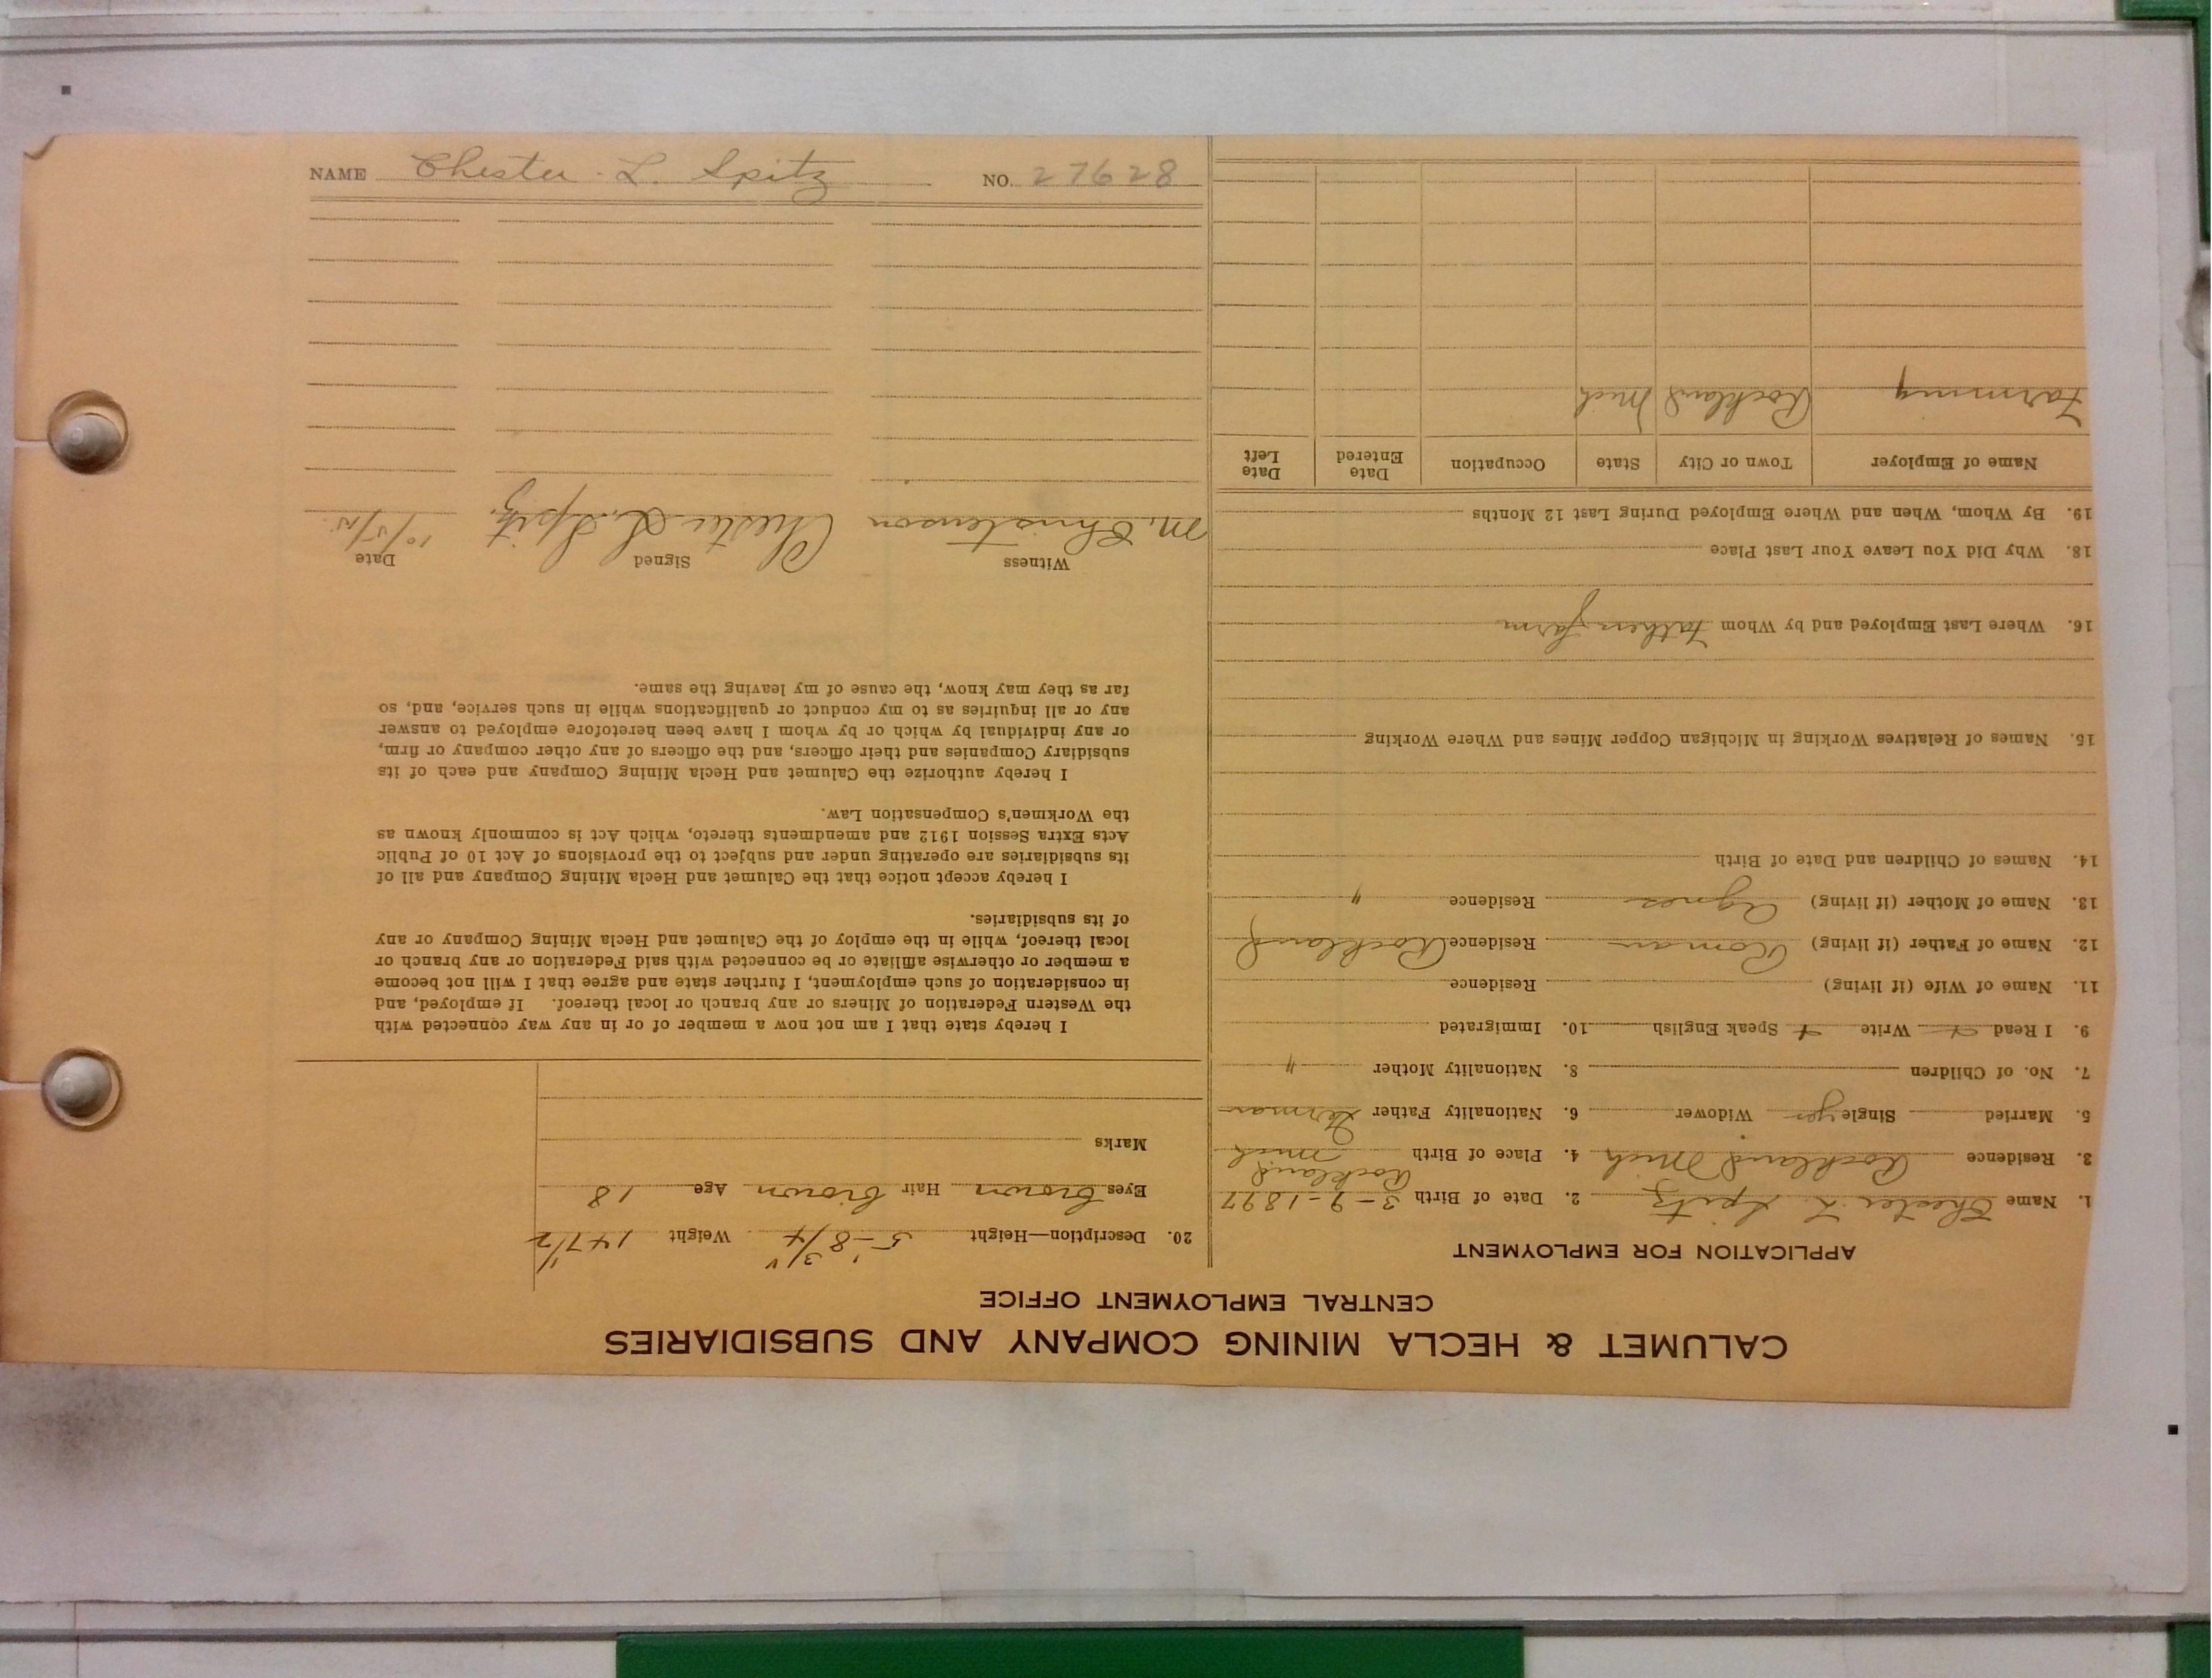 CALUMET & HECLA MINING COMPANY AND SUBSIDIARIES
CENTRAL EMPLOYMENT OFFICE
APPLICATION FOR EMPLOYMENT
1. Name Chester L. Spitz 2. Date of Birth 3-9-1897
3. Residence Rockland Mich 4. Place of Birth Rockland Mich
5. Married Single yes Widower 6. Nationality Father German
7. No. of Children 8. Nationality Mother "
9. I Read Write Speak English 10. Immigrated
11. Name of Wife (if living) Residence
12. Name of Father (if living) Roman Residence Rockland
13. Name of Mother (if living) Agnes Residence "
14. Names of Children and Date of Birth
15. Names of Relatives Working in Michigan Copper Mines and Where Working
16. Where Last Employed and by Whom Fathers farm
18. Why Did You Leave Your Last Place
19. By Whom, When and Where Employed During Last 12 Months
Name of Employer Town or City State Occupation Date Entered Date Left
Farming Rockland Mich
20. Description—Height 5'-8 3/4" Weight 147 1/2
Eyes brown Hair brown Age 18
Marks
I hereby state that I am not now a member of or in any way connected with
the Western Federation of Miners or any branch or local thereof. If employed, and
in consideration of such employment, I further state and agree that I will not become
a member or otherwise affiliate or be connected with said Federation or any branch or
local thereof, while in the employ of the Calumet and Hecla Mining Company or any
of its subsidiaries.
I hereby accept notice that the Calumet and Hecla Mining Company and all of
its subsidiaries are operating under and subject to the provisions of Act 10 of Public
Acts Extra Session 1912 and amendments thereto, which Act is commonly known as
the Workmen's Compensation Law.
I hereby authorize the Calumet and Hecla Mining Company and each of its
subsidiary Companies and their officers, and the officers of any other company or firm,
or any individual by which or by whom I have been heretofore employed to answer
any or all inquiries as to my conduct or qualifications while in such service, and, so
far as they may know, the cause of my leaving the same.
Witness Signed Date
M. Christenson Chester L. Spitz.
NAME Chester L. Spitz NO. 27628